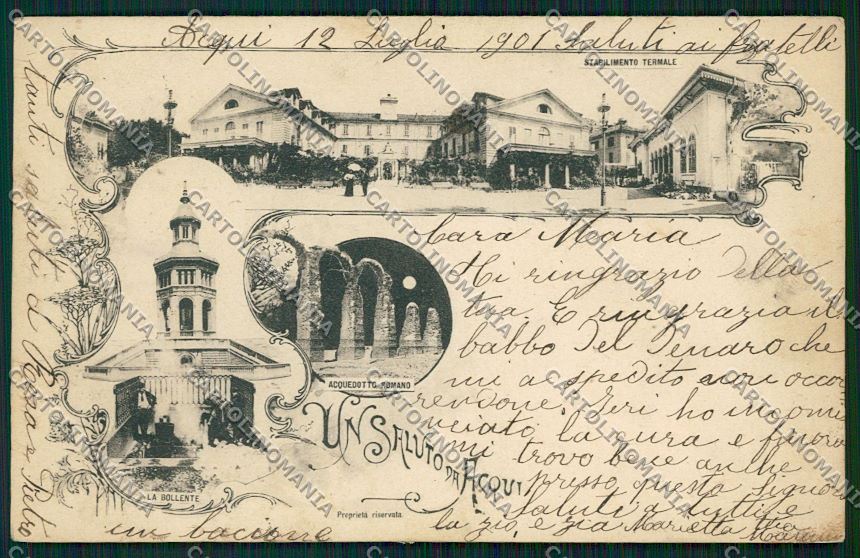 Acqui 12 Luglio 1901 Saluti ai fratelli
STABILIMENTO TERMALE
Cara Maria
Mi ringrazio della
tua. E ringrazia il
babbo del denaro che
mi a spedito non occor
rendone. Ieri ho incomi
nciato la cura e finora
mi trovo bene anche
presso questa signora
Saluti a tutti e
la zio, e zia Marietta tua
ACQUEDOTTO ROMANO
UN SALUTO DA ACQUI
LA BOLLENTE
Proprietà riservata.
tanti saluti a Rosa e Pietro
un bacione
CARTOLINOMANIA